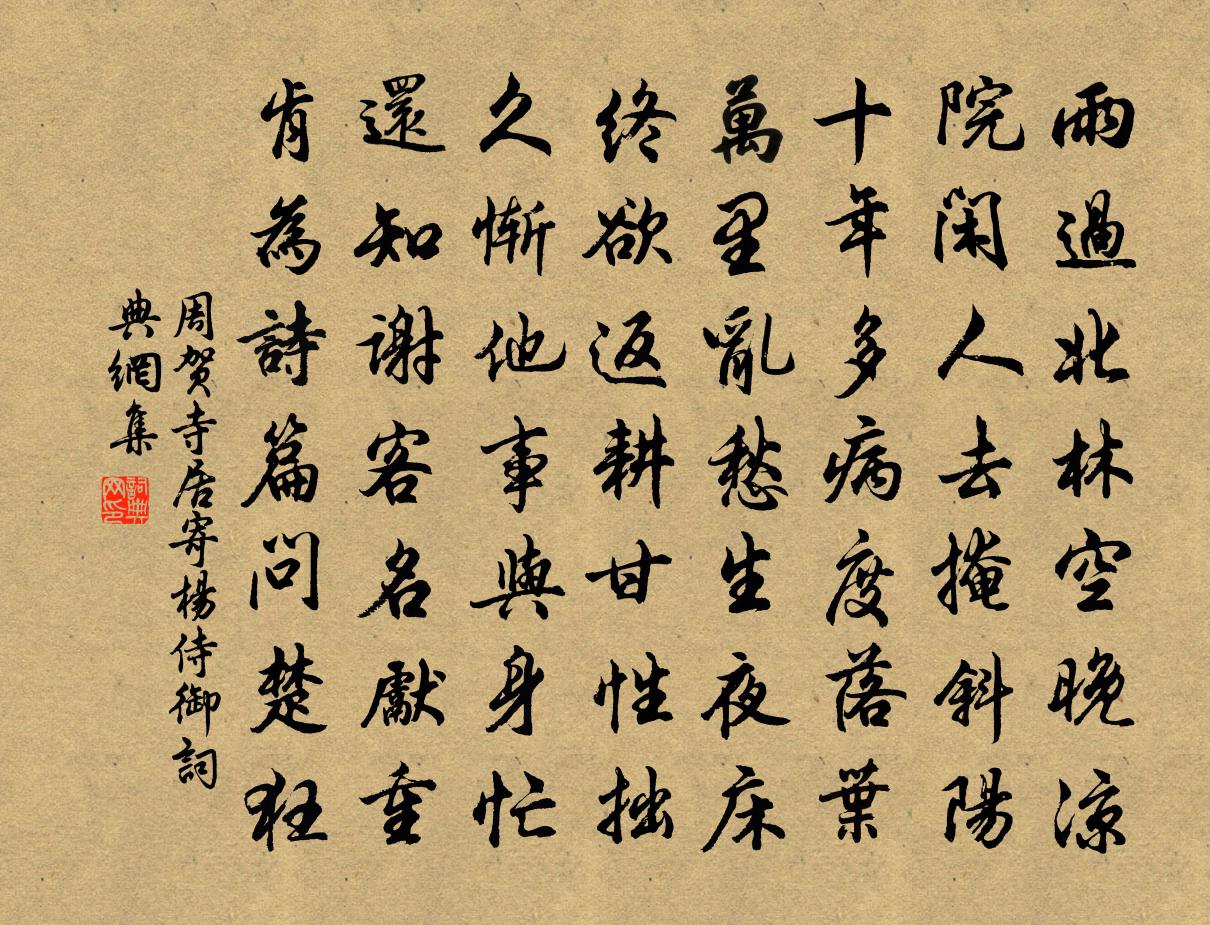 雨過北林空晚涼
院閑人去掩斜陽
十年多病度落葉
萬里亂愁生夜床
終欲返耕甘性拙
久慚他事與身忙
還知謝客名獻重
肯為詩篇問楚狂
周贺寺居寄楊侍御詞
典網集
詞典
网印